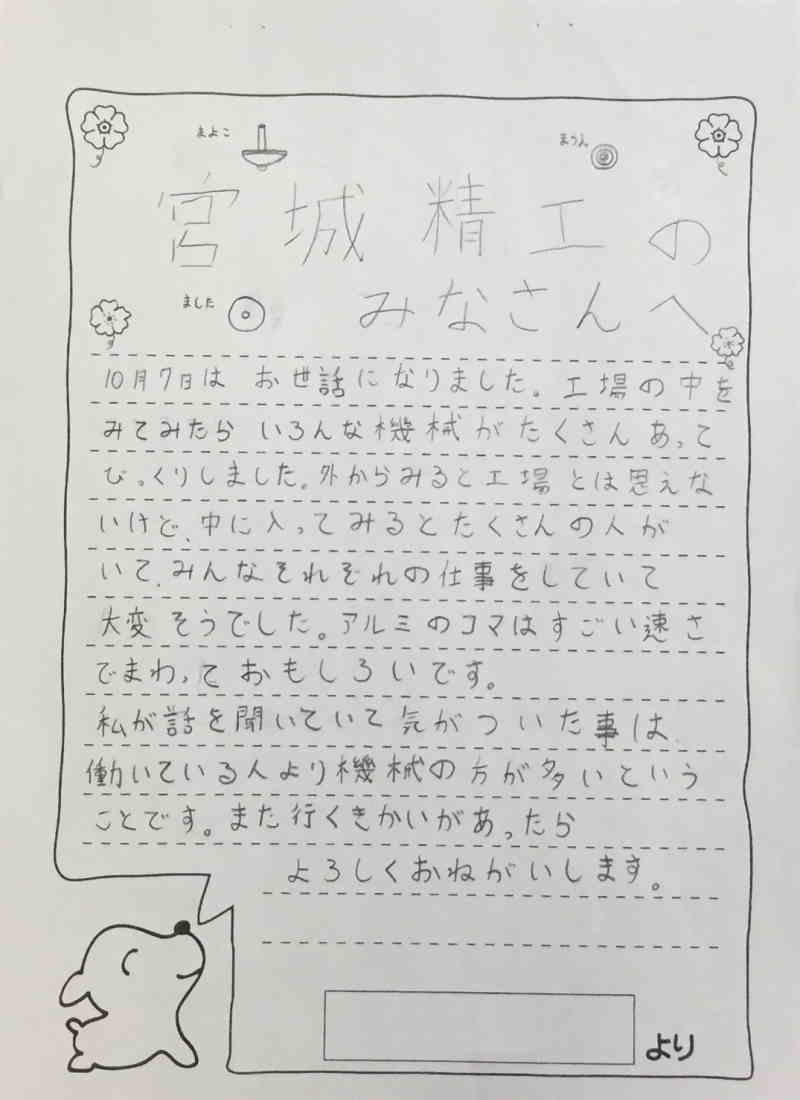 まよこ
まうえ
宮城精工の
ました
みなさんへ
10月7日は お世話になりました。工場の中を
みてみたら いろんな機械がたくさんあって
びっくりしました。外からみると工場とは思えな
いけど、中に入ってみるとたくさんの人が
いて、みんなそれぞれの仕事をしていて
大変そうでした。アルミのコマはすごい速さ
でまわっておもしろいです。
私が話を聞いていて気がついた事は、
働いている人より機械の方が多いという
ことです。また行くきかいがあったら
よろしくおねがいします。
より